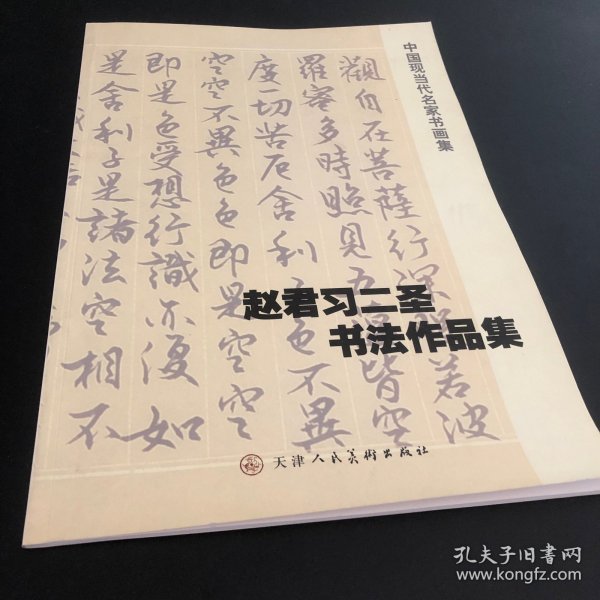 中国现当代名家书画集
觀自在菩薩行深般若波
羅蜜多時照見五蘊皆空
度一切苦厄舍利子色不異
空空不異色色即是空空
即是色受想行識亦復如
是舍利子是諸法空相不
赵君习二圣
书法作品集
天津人民美術出版社
孔夫子旧书网
www.kongfz.com